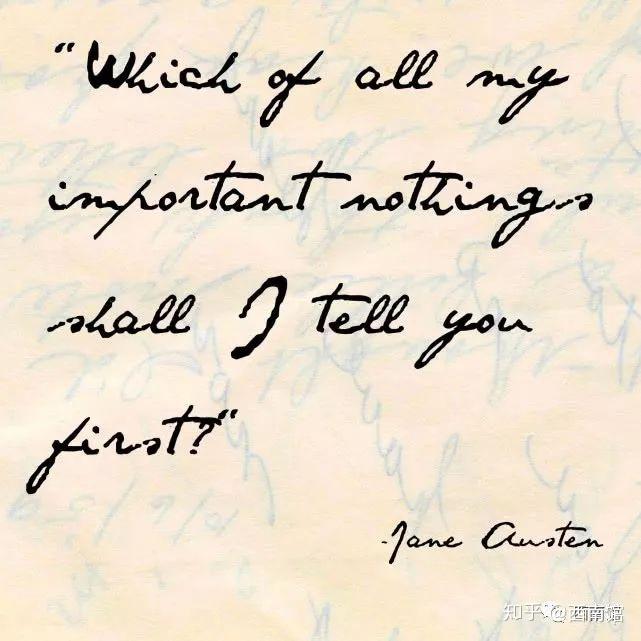 "Which of all my
important nothings
shall I tell you
first?"
-Jane Austen
知乎 @西南嬉